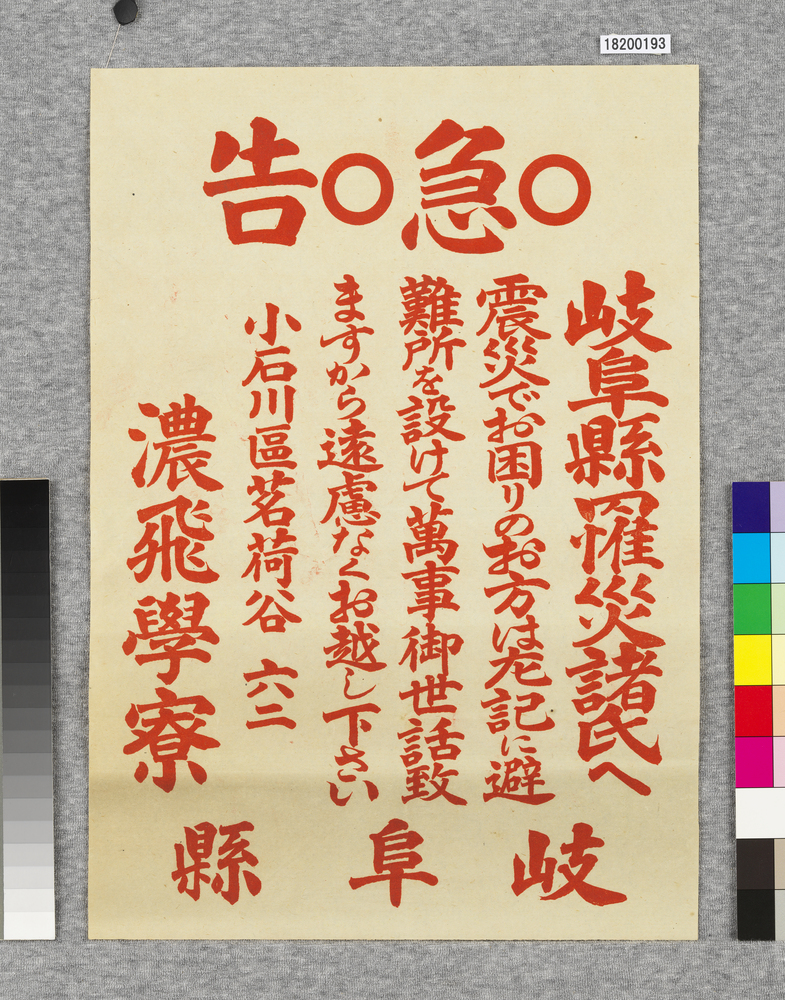 18200193
○急○告
岐阜縣罹災諸氏へ
震災でお困りのお方は左記に避
難所を設けて萬事御世話致
ますから遠慮なくお越し下さい
小石川區茗荷谷 六二
濃飛學寮
岐阜縣